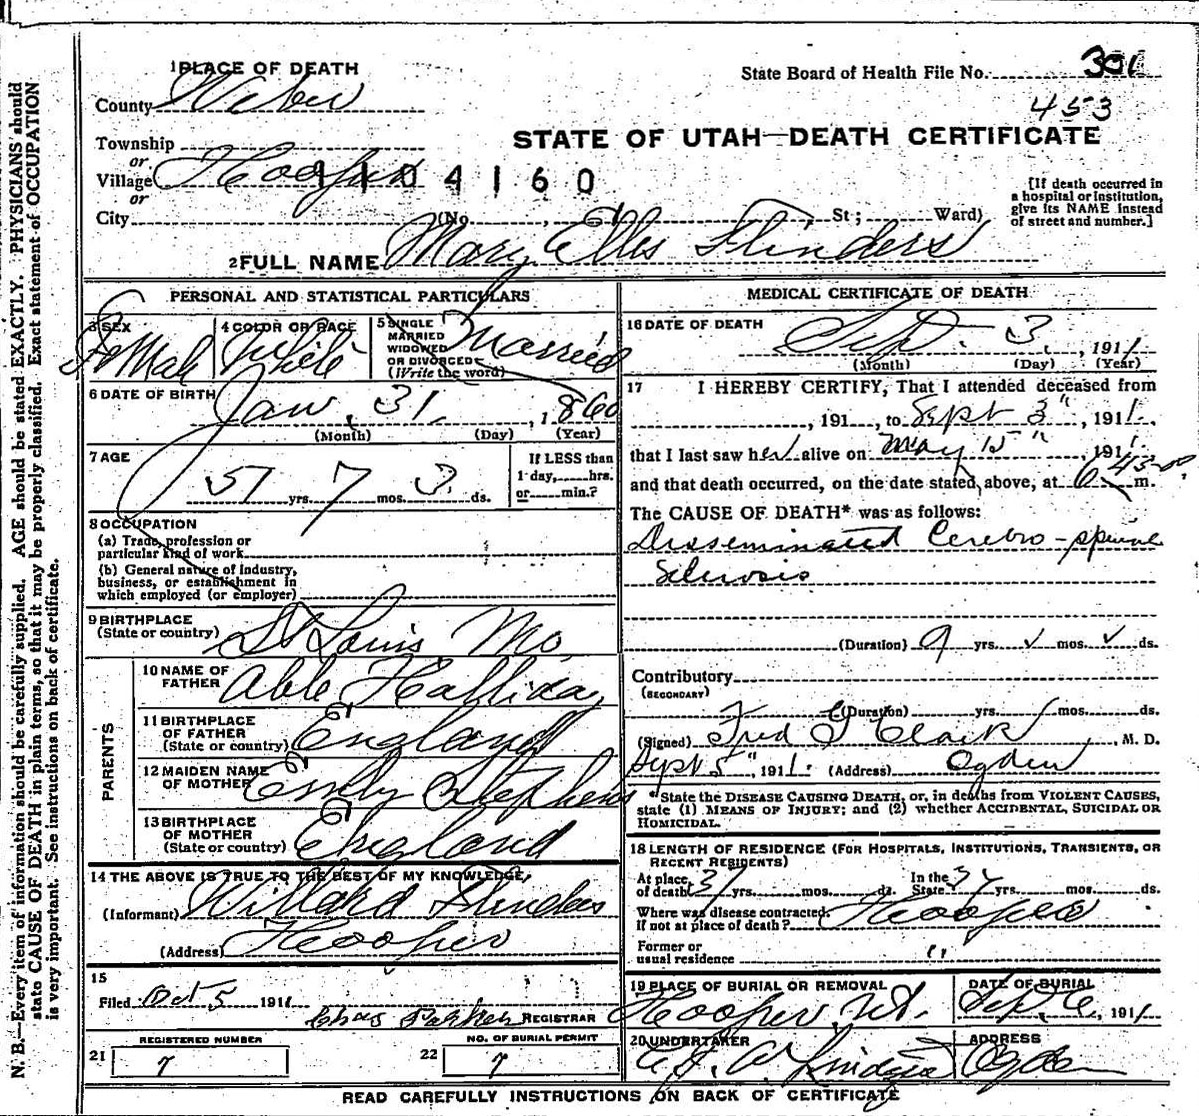 1 PLACE OF DEATH
State Board of Health File No. 301
County Weber
453
STATE OF UTAH—DEATH CERTIFICATE
Township
or
Village Hooper
1104160
or
City (No. , St; Ward)
[If death occurred in
a hospital or institution,
give its NAME instead
of street and number.]
2 FULL NAME Mary Ellis Flinders
PERSONAL AND STATISTICAL PARTICULARS
3 SEX
Female
4 COLOR OR RACE
White
5 SINGLE
MARRIED
WIDOWED
OR DIVORCED
(Write the word)
Married
6 DATE OF BIRTH
Jan. 31, 1860
(Month) (Day) (Year)
7 AGE
51 yrs. 7 mos. 3 ds.
If LESS than
1 day, hrs.
or min.?
8 OCCUPATION
(a) Trade, profession or
particular kind of work
(b) General nature of industry,
business, or establishment in
which employed (or employer)
9 BIRTHPLACE
(State or country) St Louis Mo
PARENTS
10 NAME OF
FATHER Able Halliday
11 BIRTHPLACE
OF FATHER
(State or country) England
12 MAIDEN NAME
OF MOTHER Emily Stephens
13 BIRTHPLACE
OF MOTHER
(State or country) England
14 THE ABOVE IS TRUE TO THE BEST OF MY KNOWLEDGE
(Informant) Willard Flinders
(Address) Hooper
15
Filed Oct 5 1911 Chas Parker REGISTRAR
REGISTERED NUMBER
21 7
NO. OF BURIAL PERMIT
22 7
MEDICAL CERTIFICATE OF DEATH
16 DATE OF DEATH
Sept. 3, 1911
(Month) (Day) (Year)
17 I HEREBY CERTIFY, That I attended deceased from
, 191 , to Sept 3", 1911.
that I last saw her alive on May 15" 1911.
and that death occurred, on the date stated above, at 6 45 m.
The CAUSE OF DEATH* was as follows:
Disseminated Cerebro-spinal
Sclerosis
(Duration) 9 yrs. ✓ mos. ✓ ds.
Contributory
(SECONDARY)
(Duration) yrs. mos. ds.
(Signed) Fred Clark, M. D.
Sept 5", 1911. (Address) Ogden
*State the DISEASE CAUSING DEATH, or, in deaths from VIOLENT CAUSES,
state (1) MEANS OF INJURY; and (2) whether ACCIDENTAL, SUICIDAL OR
HOMICIDAL.
18 LENGTH OF RESIDENCE (FOR HOSPITALS, INSTITUTIONS, TRANSIENTS, OR
RECENT RESIDENTS)
At place
of death 37 yrs. mos. ds.
In the
State 37 yrs. mos. ds.
Where was disease contracted,
If not at place of death? Hooper
Former or
usual residence "
19 PLACE OF BURIAL OR REMOVAL
Hooper, Ut.
DATE OF BURIAL
Sept. 6, 1911
20 UNDERTAKER
ADDRESS
Ogden
READ CAREFULLY INSTRUCTIONS ON BACK OF CERTIFICATE
N. B.—Every item of information should be carefully supplied. AGE should be stated EXACTLY. PHYSICIANS should
state CAUSE OF DEATH in plain terms, so that it may be properly classified. Exact statement of OCCUPATION
is very important. See instructions on back of certificate.